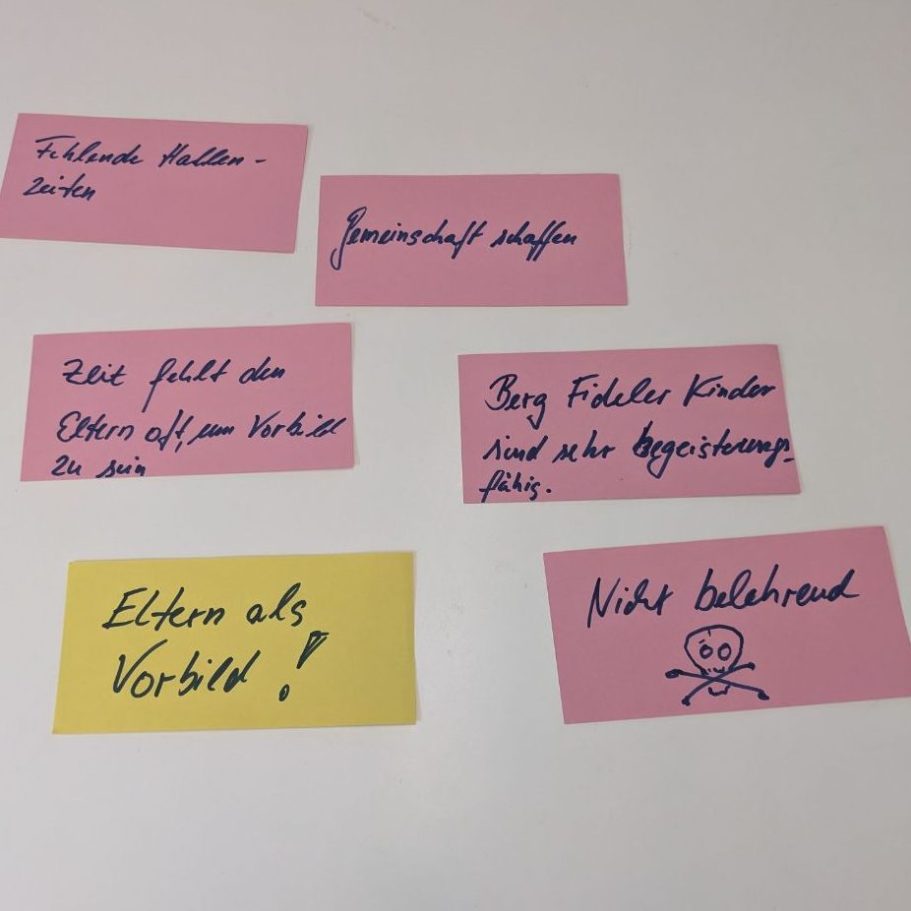 Fehlende Hallen-
zeiten
Gemeinschaft schaffen
Zeit fehlt den
Eltern oft, um Vorbild
zu sein
Berg Fideler Kinder
sind sehr begeisterungs-
fähig.
Eltern als
Vorbild!
Nicht belehrend